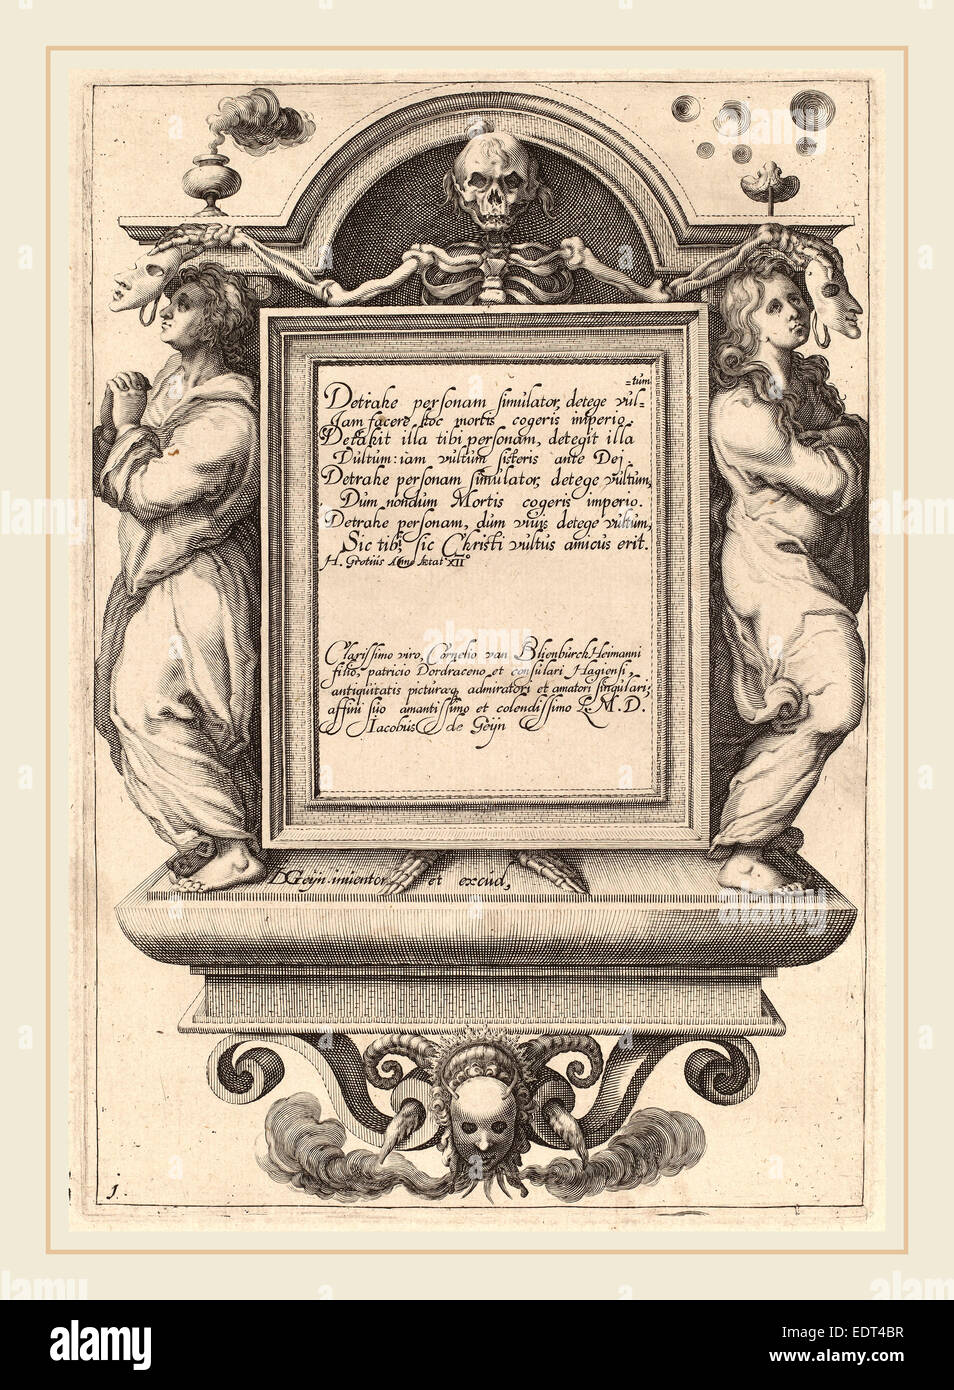 =tum
Detrahe personam simulator, detege vul-
Iam facere hoc mortis cogeris imperio.
Detrahit illa tibi personam, detegit illa
Vultum: iam vultum sisteris ante Dei
Detrahe personam simulator, detege vultum,
Dum nondum Mortis cogeris imperio.
Detrahe personam, dum vivis detege vultum,
Sic tibi, sic Christi vultus amicus erit.
H. Grotius Anno Aetat XII°
Clarissimo viro, Cornelio van Blienburch Heimanni
filio, patricio Dordraceno et consulari Hagiensi,
antiquitatis picturaeq, admiratori et amatori singulari;
affini suo amantissimo et colendissimo L.M.D.
Iacobus de Geijn
DGeijn inventor et excud,
1.
alamy
Image ID: EDT4BR
www.alamy.com